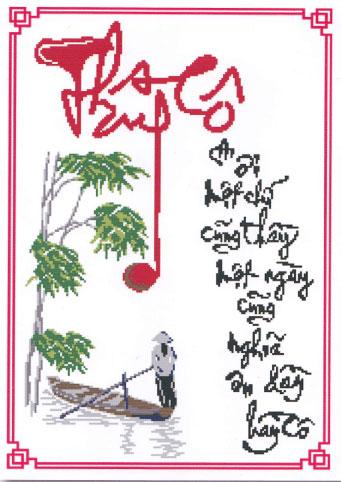 Thầy Cô
ơi
một chữ
cũng thầy
một ngày
cũng
nghĩa
ân đầy
Cô